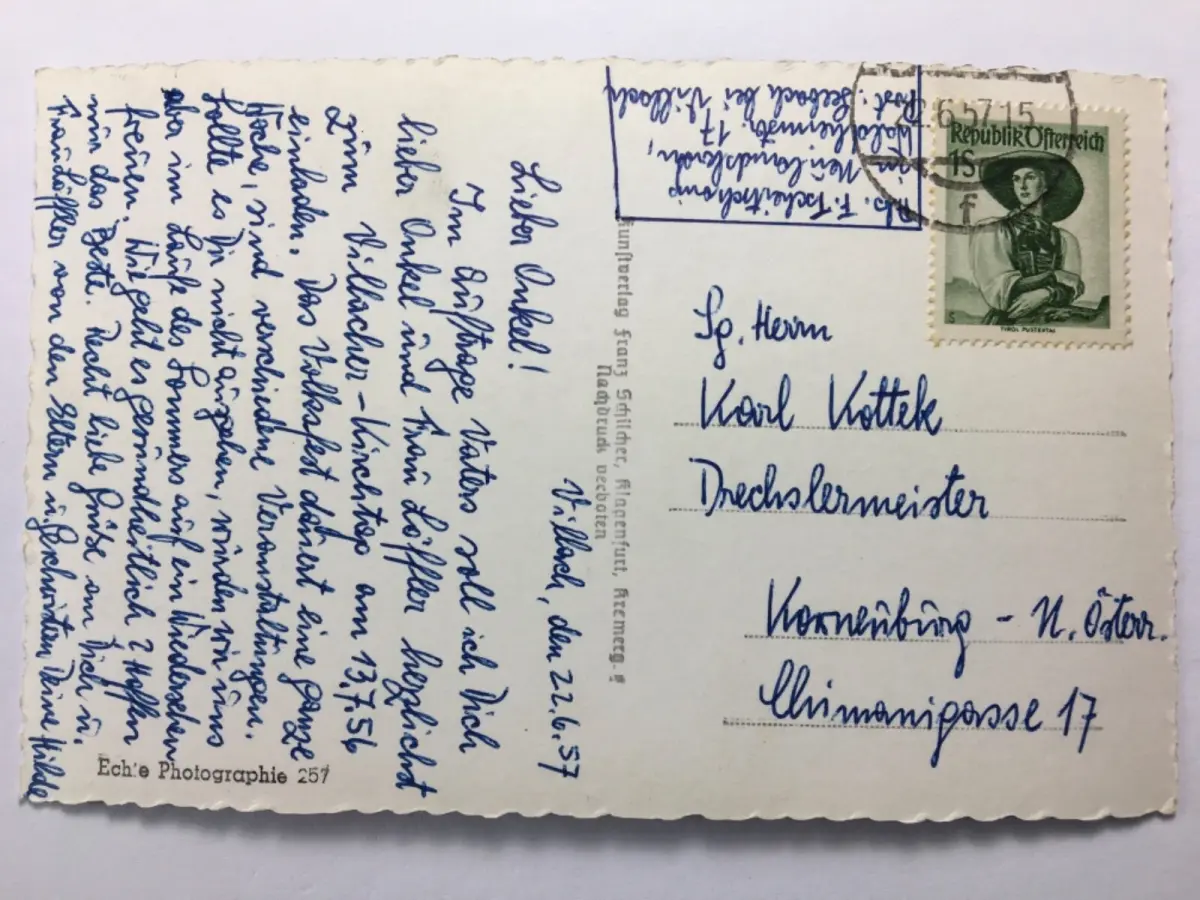 Villach, den 22.6.57
Lieber Onkel!
Im Auftrage Vaters soll ich Dich
lieber Onkel und Frau Löffler herzlichst
zum Villacher-Kirchtag am 13,7,56
einladen. Das Volksfest dauert eine ganze
Woche, sind verschiedene Veranstaltungen.
Sollte es Dir nicht ausgehen, würden wir uns
aber im Laufe des Sommers auf ein Wiedersehen
freuen. Wie geht es gesundheitlich? Hoffen
nur das Beste. Recht liebe Grüße an Dich u.
Frau Löffler von den Eltern u. Geschwistern Deine Hilde
Echte Photographie 257
Kunstverlag Franz Schilcher, Klagenfurt, Kremerg. 9
Nachdruck verboten
Abs. F. Tscheitschonig
in Neulandskron,
Waldheimstr. 17
Post: Seebach bei Villach
22.6.57.15
f
Republik Österreich
1S
S
TIROL PUSTERTAL
Sg. Herrn
Karl Kottek
Drechslermeister
Korneuburg - N. Österr.
Chimanigasse 17